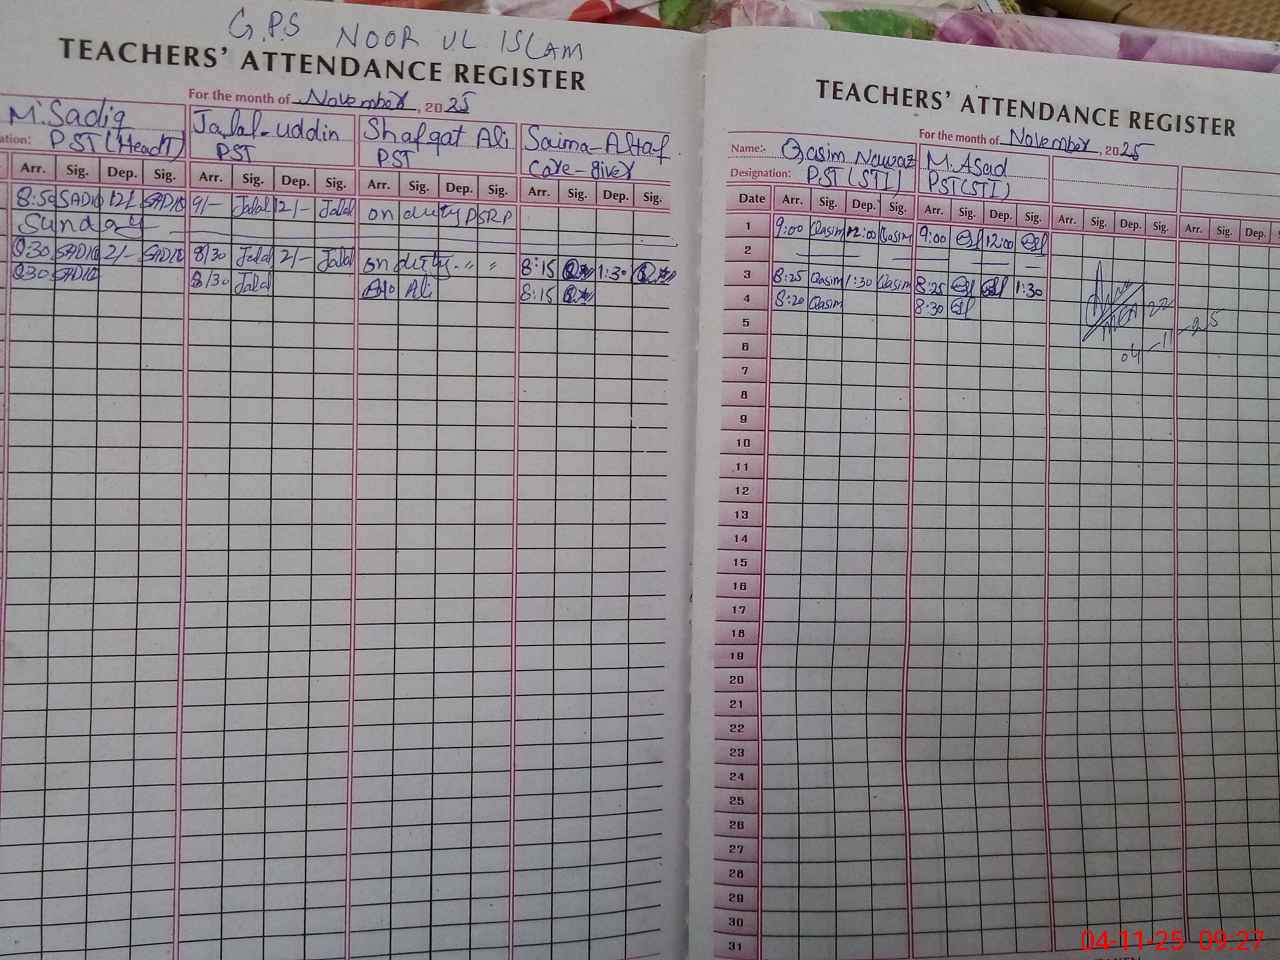 G.P.S NOOR UL ISLAM
TEACHERS' ATTENDANCE REGISTER
For the month of November, 2025
M.Sadiq Jalal-uddin Shafqat Ali Saima-Altaf
ation: PST (Head) PST PST Care-giver
Arr. Sig. Dep. Sig. Arr. Sig. Dep. Sig. Arr. Sig. Dep. Sig. Arr. Sig. Dep. Sig.
8:50 SADIQ 12/- SADIQ 9/- Jalal 12/- Jalal on duty PSRP
Sunday
8:30 SADIQ 2/- SADIQ 8/30 Jalal 2/- Jalal on duty " " 8:15 1:30
8:30 SADIQ 8/30 Jalal Ali 8:15
TEACHERS' ATTENDANCE REGISTER
For the month of November, 2025
Name:- Qasim Nawaz M.Asad
Designation: PST (STI) PST(STI)
Date Arr. Sig. Dep. Sig. Arr. Sig. Dep. Sig. Arr. Sig. Dep. Sig. Arr. Sig. Dep.
1 9:00 Qasim 12:00 Qasim 9:00 12:00
2
3 8:25 Qasim 1:30 Qasim 8:25 1:30
4 8:20 Qasim 8:30
5
04-11-25
6
7
8
9
10
11
12
13
14
15
16
17
18
19
20
21
22
23
24
25
26
27
28
29
30
31
04-11-25 09:27